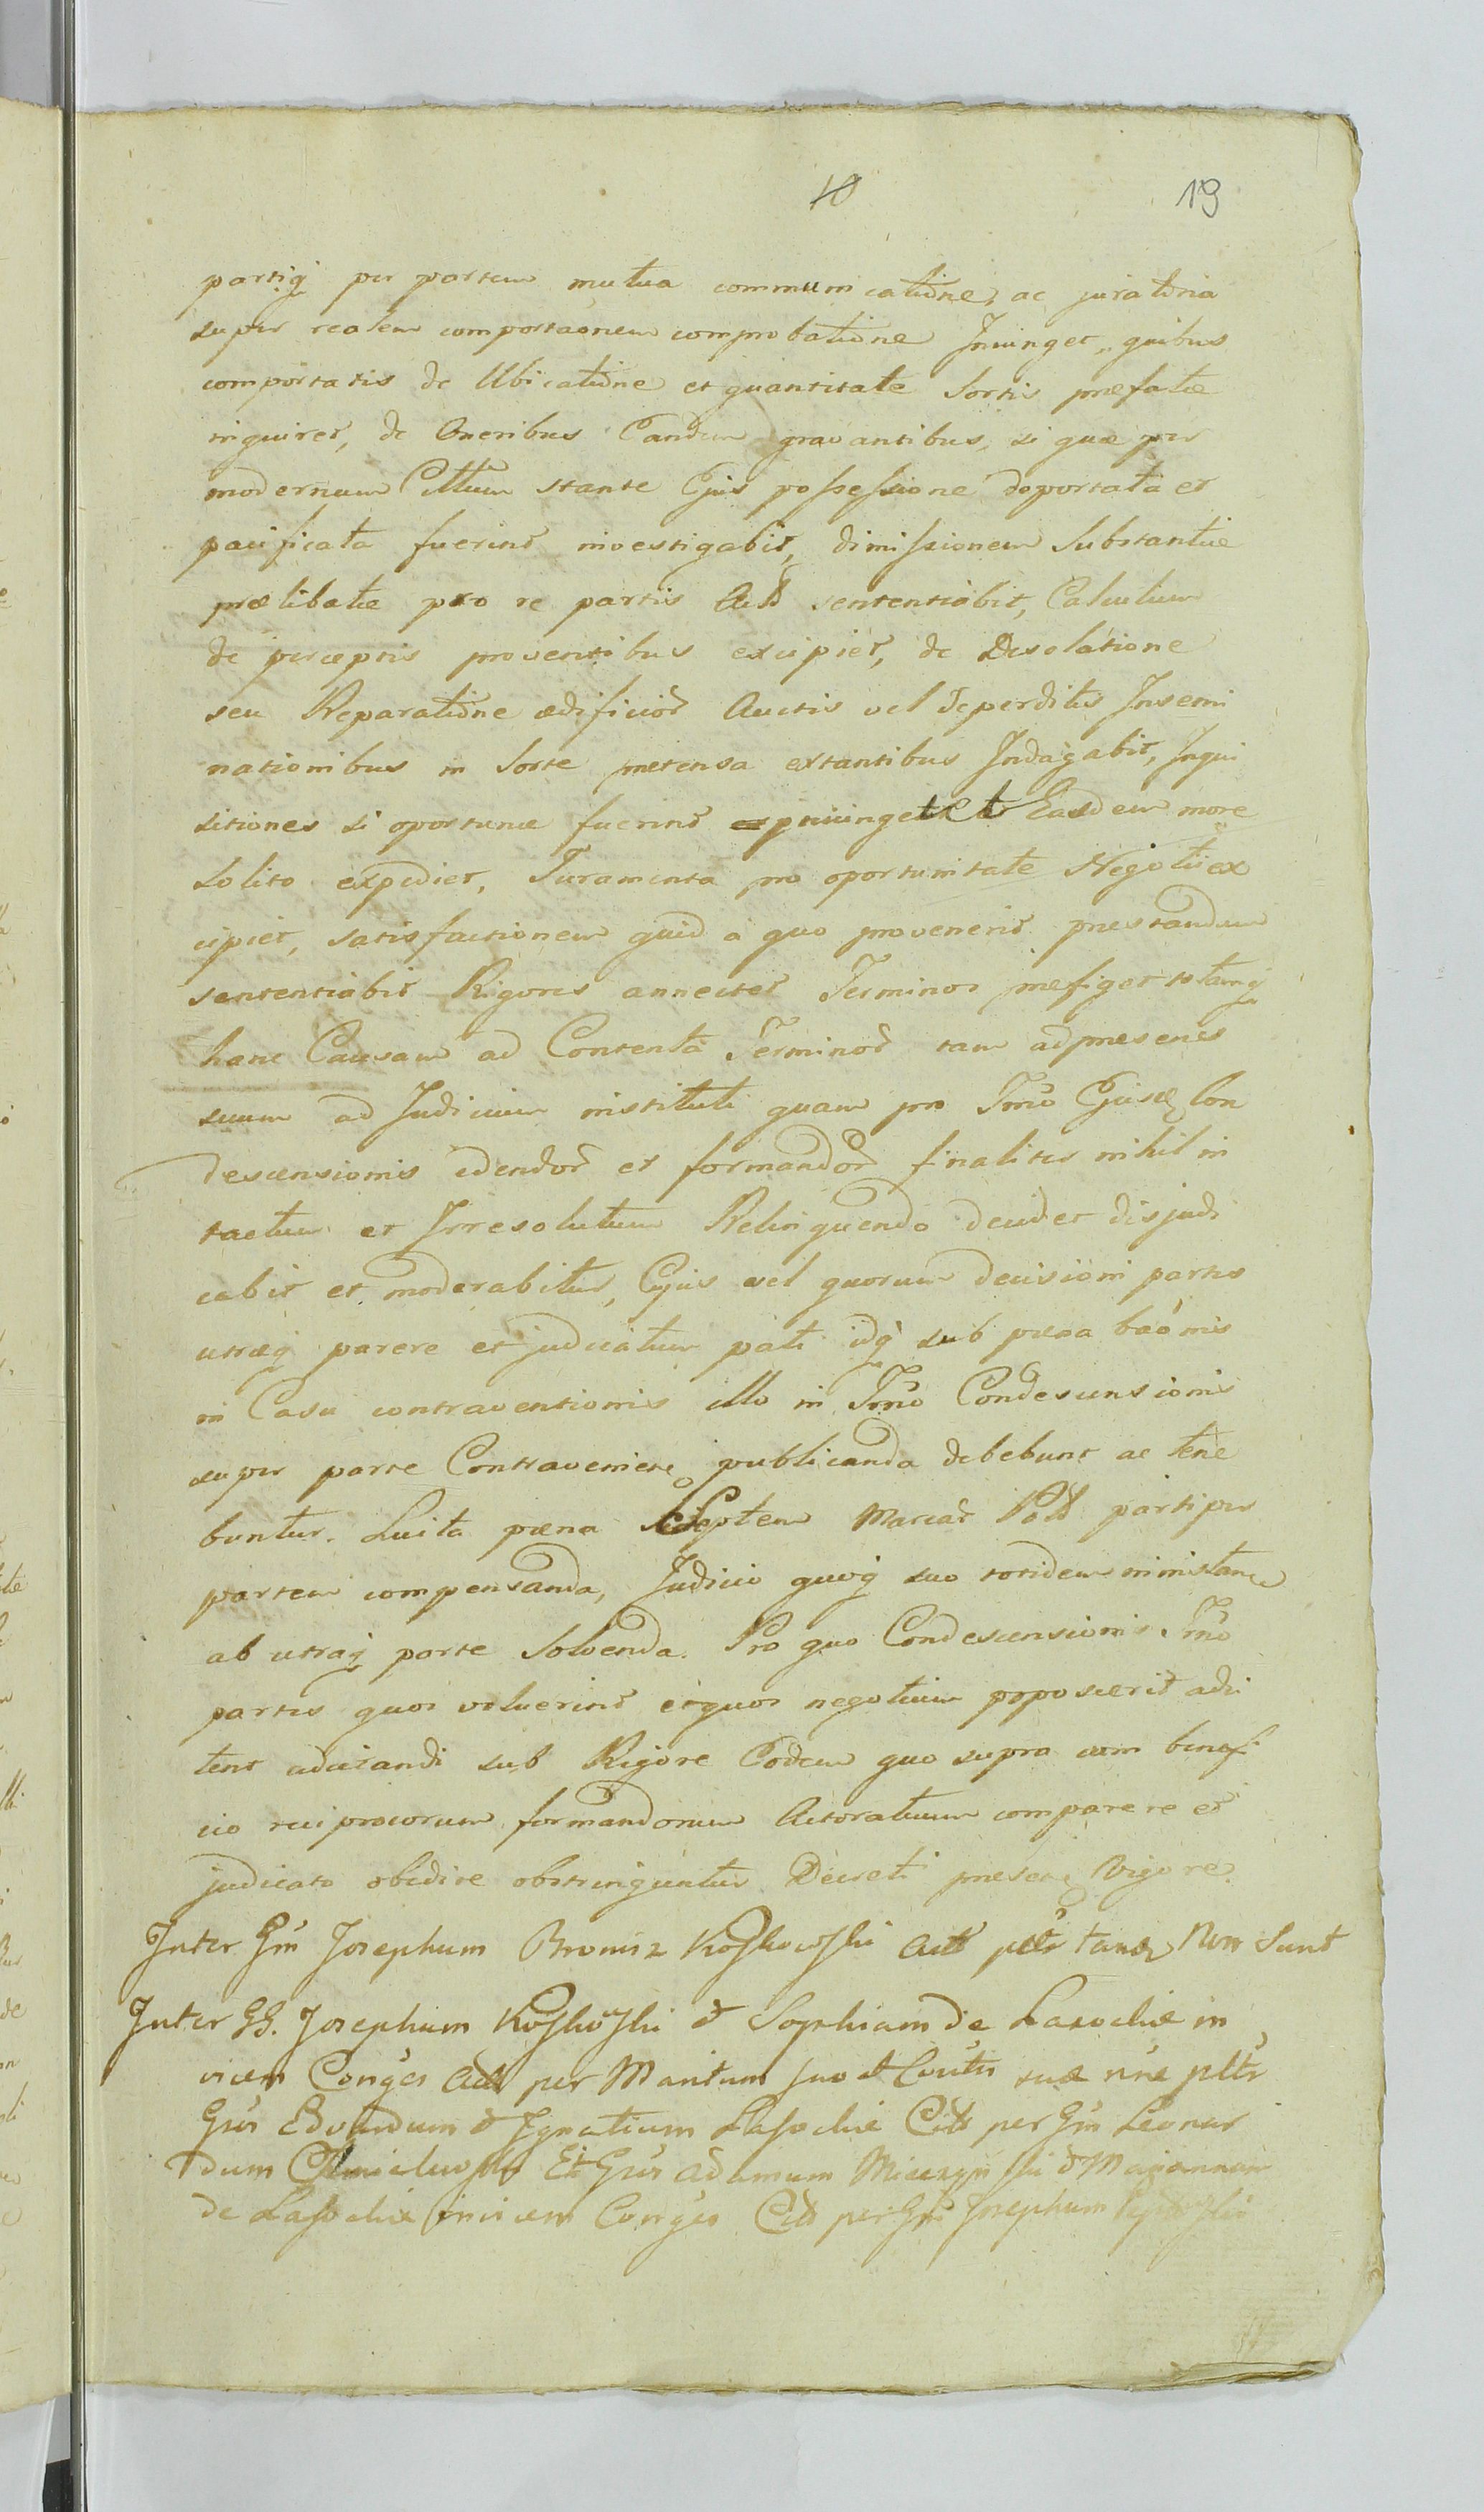 10 19
partiq per partem mutua communicatione, ac juratoria
super realem comportaonem comprobatione Injunget, quibus
comportatis de Ubicatione et quantitate Sortis præfatæ
inquiret, de Oneribus Eandem gravantibus, si quæ per
modernum Cittum stante Ejus possessione deportata et
pacificata fuerint investigabit, dimissionem Substantiæ
prælibatæ pro re partis Act sententiabit, Calculum
de perceptis proventibus excipiet, de Desolatione
seu Reparatione ædificior Auctis vel deperditis Insemi
nationibus in Sorte pretensa extantibus Indagabit, Inqui
sitiones si oportunæ fuerint injunget et Easdem more
solito expediet, Juramenta pro oportunitate Negotii ex
cipiet, satisfactionem quid a quo provenerit prestandam
sententiabit Rigores annectet Terminos prefiget totamq
hanc Causam ad Contenta Terminor tam ad præsens
suum ad Judicium instituti quam pro Tmo Ejusd Con
descensionis edendor et formandor finaliter nihil in
tactum et Irresolutum Relinquendo decidet disjudi
cabit et moderabitur, Cujus vel quorum decisioni partes
utræq parere et judicatum pati idq sub pæna baonis
in Casu contraventionis illo in Tmo Condescensionis
super parte Contraveniente publicanda debebunt ac tene
buntur. Luita pæna Septem Marcar Pol parti per
partem compensanda, Judicio quoq suo totidem ministran
ab utraq parte Solvenda. Pro quo Condescensionis Tmo
partes quos voluerint et quos negotium poposcerit adci
tent adcitandi sub Rigore Eodem quo supra cum benefi
cio reciprocorum formandorum Actoratuum comparere et
judicato obedire obstringuntur Decreti presen Vigore.
Inter Gm Josephum Bronisz Koskowski Act Non Sunt
Inter GG. Josephum Koskowski et Sophiam de Lasockie in
vicem Conges Act per Maritum suo et Conthi suæ nne pltr
Gros et Ignatium Lasockie Citt per Gm Leonar
dum Et Gros Adamum et Mariannam
de Lasockie invicem Conges Citt per Gm Josephum